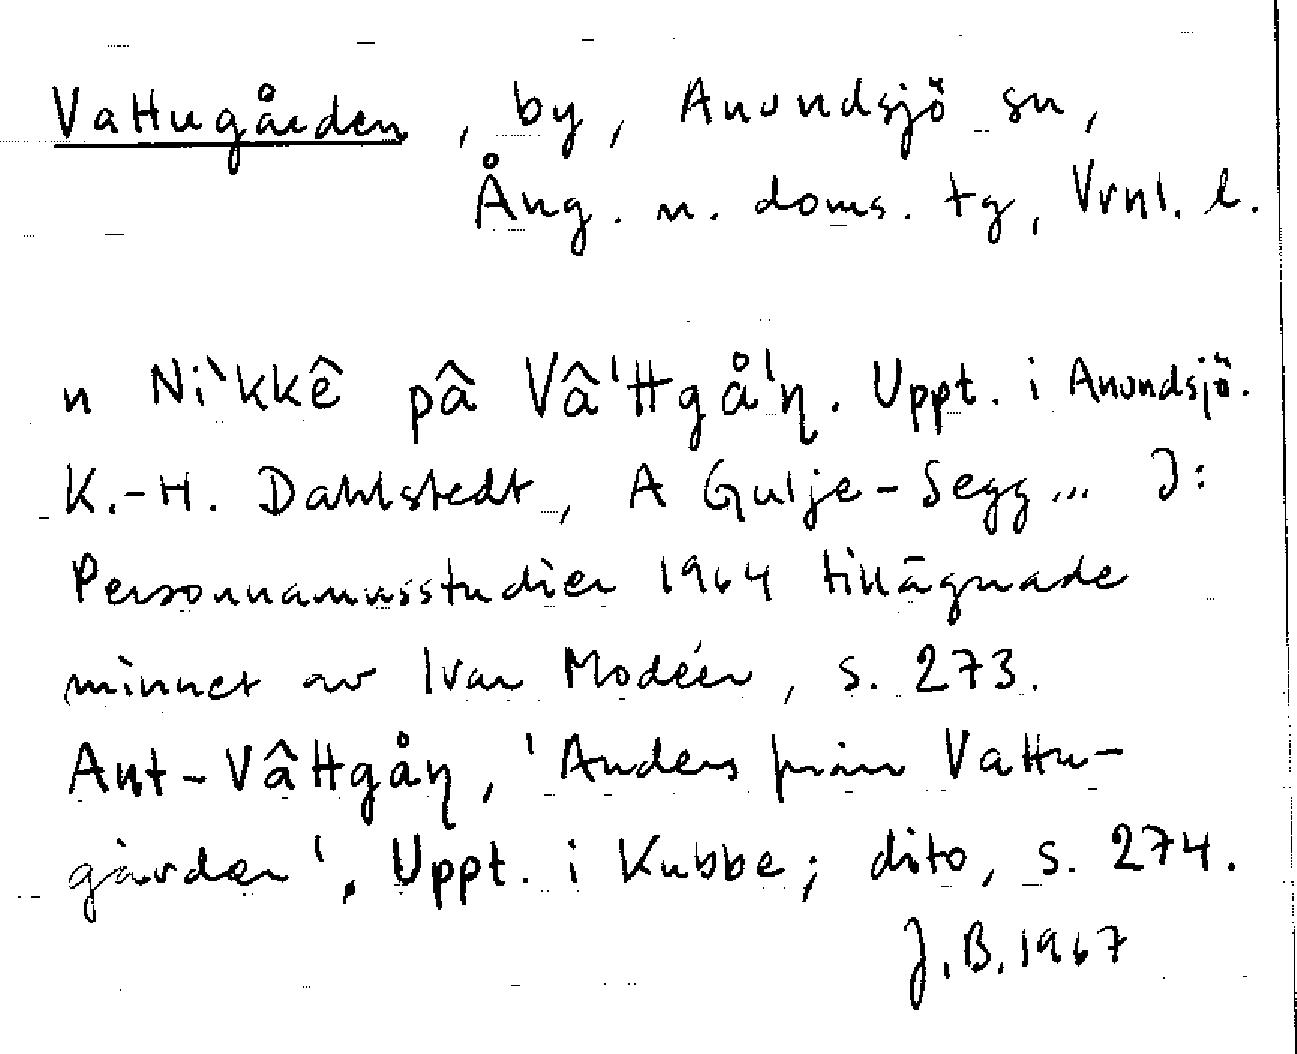 Vattugården, by, Anundsjö sn,
Ång. n. doms. tg, Vrnl. l.
n Ni`kkê pâ Vâ'ttgå'ŋ. Uppt. i Anundsjö.
K.-H. Dahlstedt, A Gulje-Segg... I:
Personnamnsstudier 1964 tillägnade
minnet av Ivar Modéer, s. 273.
Ant-Vâttgåŋ, 'Anders från Vattu-
gården'. Uppt. i Kubbe; dito, s. 274.
J.B. 1967